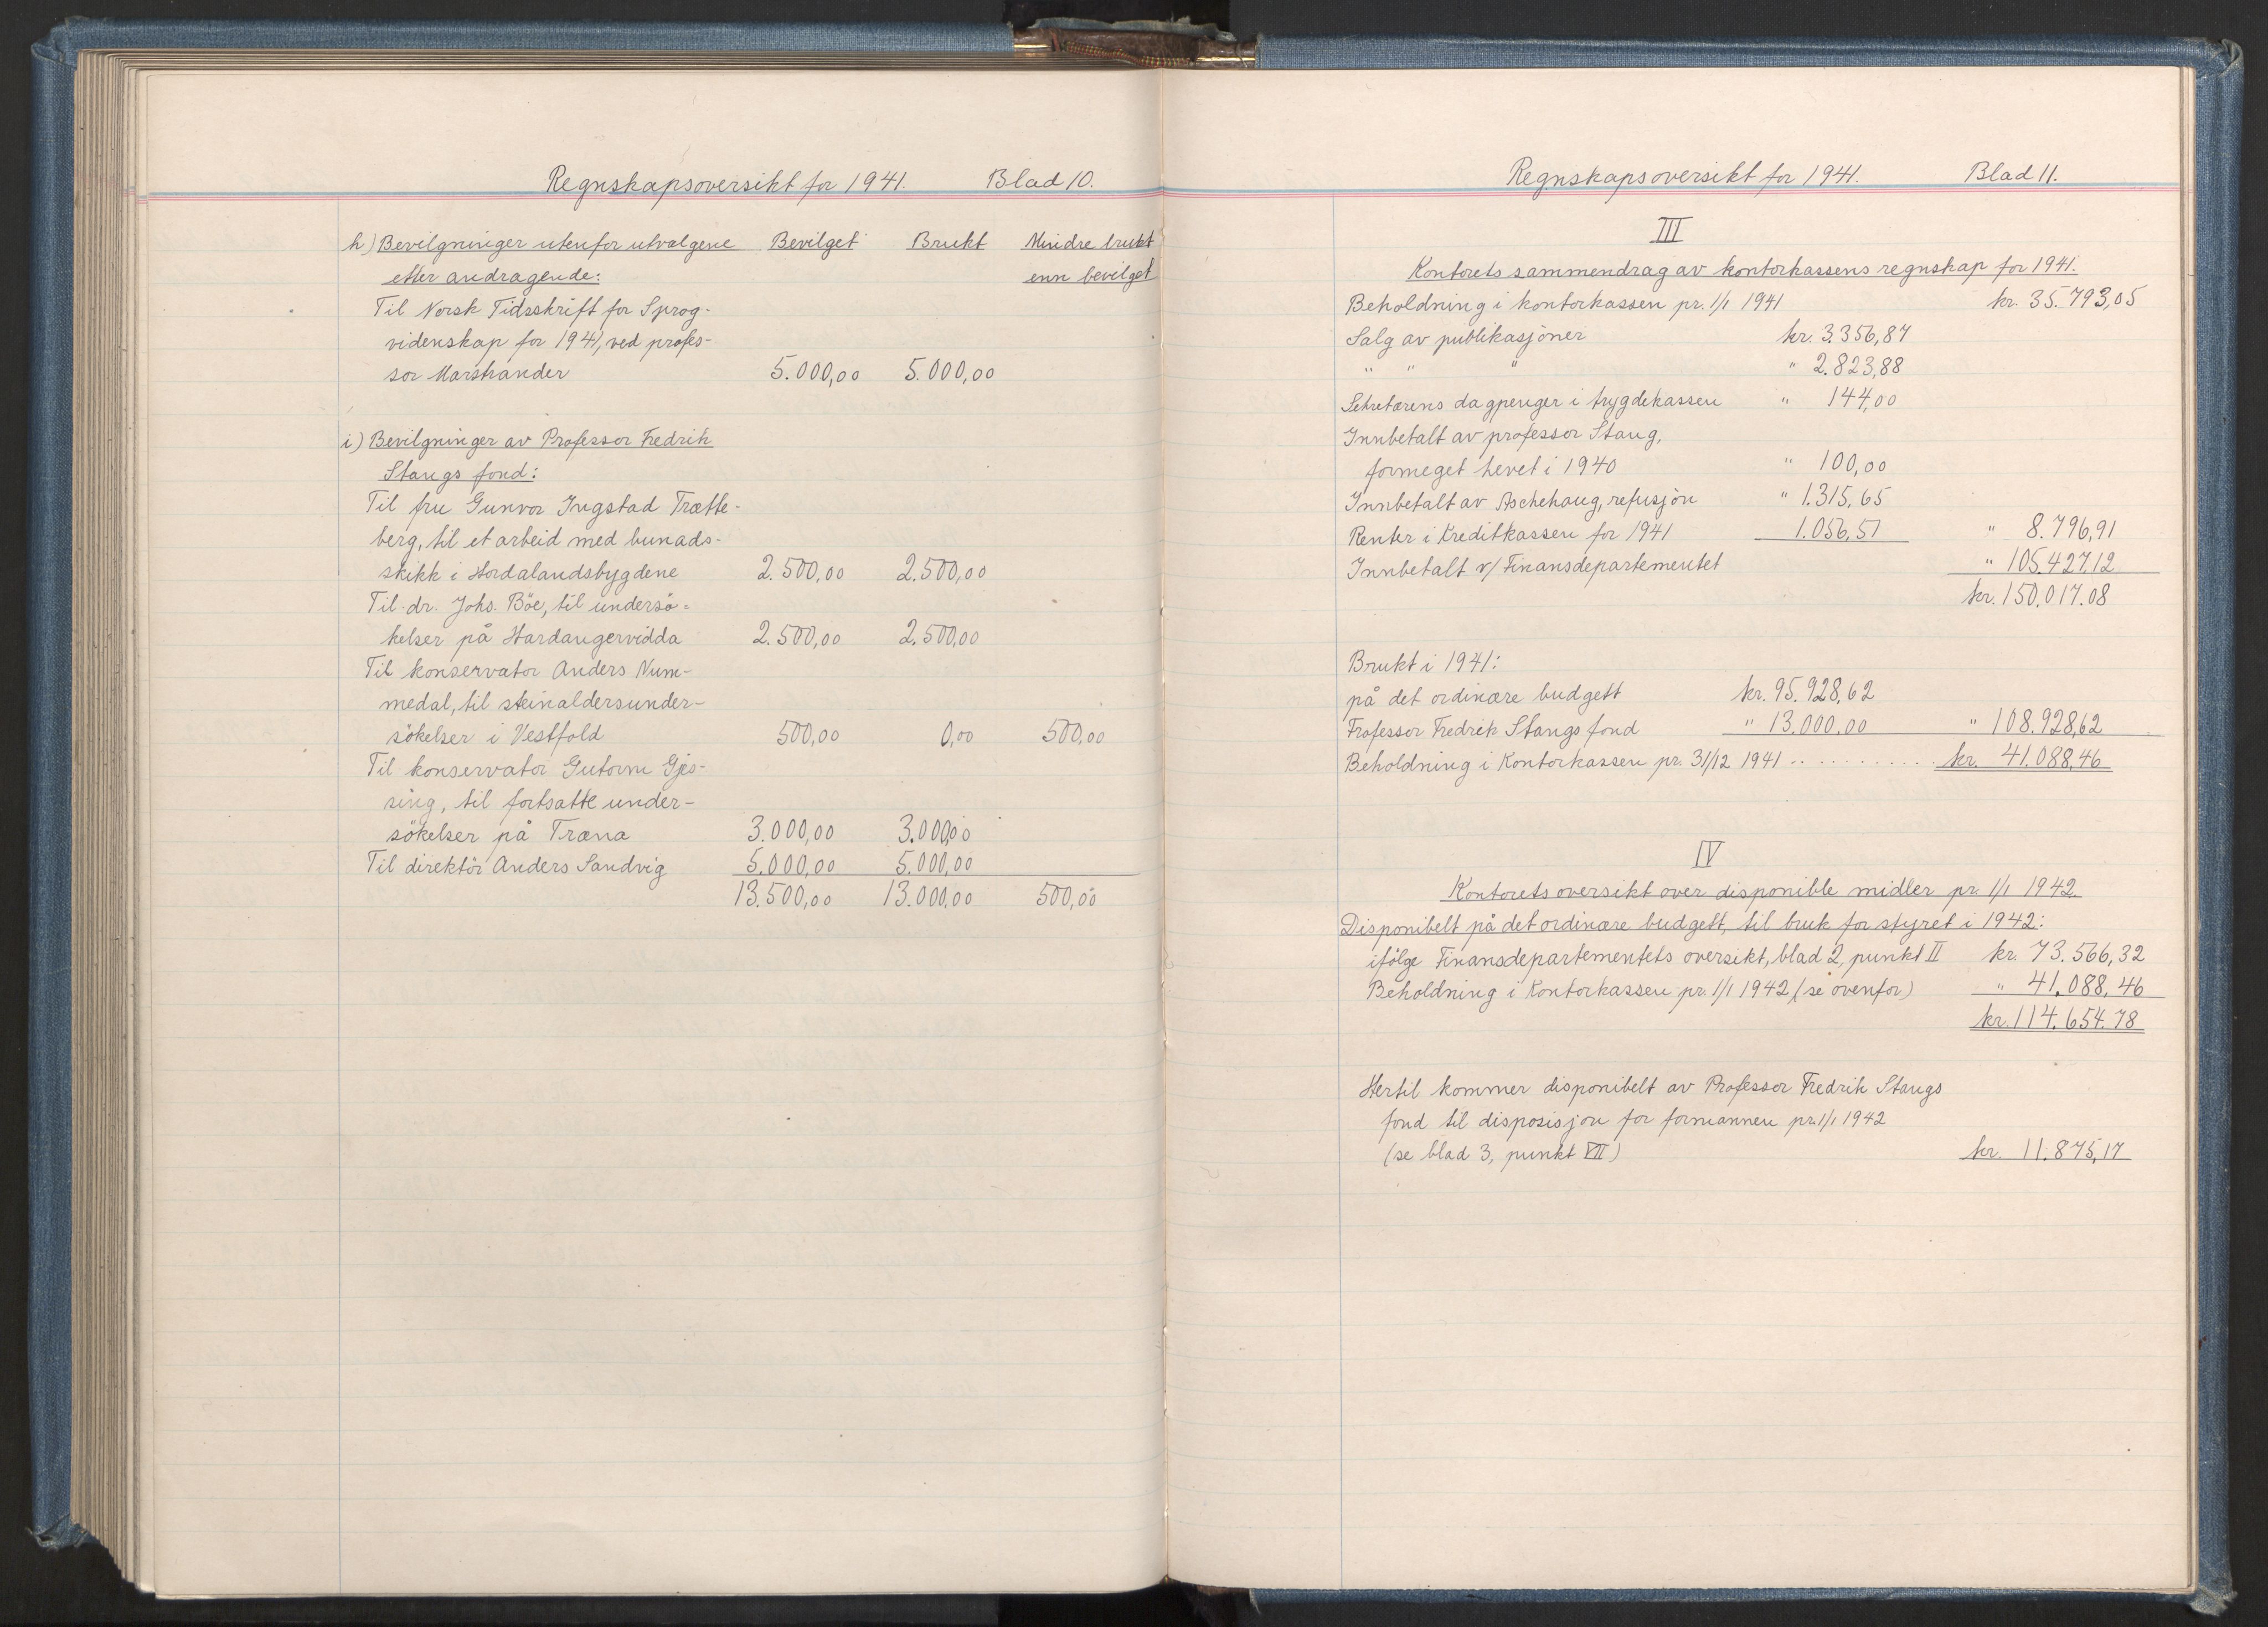 Regnskapsoversikt for 1941. Blad 10.
h) Bevilgninger utenfor utvalgene Bevilget Brukt Mindre brukt
efter andragende: enn bevilget
Til Norsk Tidsskrift for Sprog-
videnskap for 1941, ved profes-
sor Marstrander 5.000,00 5.000,00
i) Bevilgninger av Professor Fredrik
Stangs fond:
Til fru Gunvor Ingstad Trætte-
berg, til et arbeid med bunads-
skikk i Hordalandsbygdene 2.500,00 2.500,00
Til dr. Johs. Böe, til undersö-
kelser på Hardangervidda 2.500,00 2.500,00
Til konservator Anders Num-
medal, til steinaldersunder-
sökelser i Vestfold 500,00 0,00 500,00
Til konservator Gutorm Gjes-
sing, til fortsatte under-
sökelser på Træna 3.000,00 3.000,00
Til direktör Anders Sandvig 5.000,00 5.000,00
13.500,00 13.000,00 500,00
Regnskapsoversikt for 1941. Blad 11.
III
Kontorets sammendrag av kontorkassens regnskap for 1941.
Beholdning i kontorkassen pr. 1/1 1941 kr. 35.793,05
Salg av publikasjoner kr. 3.356,87
" " " " 2.823,88
Sekretærens dagpenger i trygdekassen " 144,00
Innbetalt av professor Stang,
formeget hevet i 1940 " 100,00
Innbetalt av Aschehoug, refusjon " 1.315,65
Renter i Kreditkassen for 1941 1.056,51 " 8.796,91
Innbetalt v/ Finansdepartementet " 105.427,12
kr. 150.017.08
Brukt i 1941:
på det ordinære budgett kr. 95.928,62
Professor Fredrik Stangs fond " 13.000,00 " 108.928,62
Beholdning i Kontorkassen pr. 31/12 1941 .. . . . . . . . . . . kr. 41.088,46
IV
Kontorets oversikt over disponible midler pr. 1/1 1942.
Disponibelt på det ordinære budgett, til bruk for styret i 1942:
ifölge Finansdepartementets oversikt, blad 2, punkt II kr. 73.566,32
Beholdning i Kontorkassen pr. 1/1 1942 (se ovenfor) " 41.088,46
kr. 114.654.78
Hertil kommer disponibelt av Professor Fredrik Stangs
fond til disposisjon for formannen pr. 1/1 1942
(se blad 3, punkt VII) kr. 11.875,17